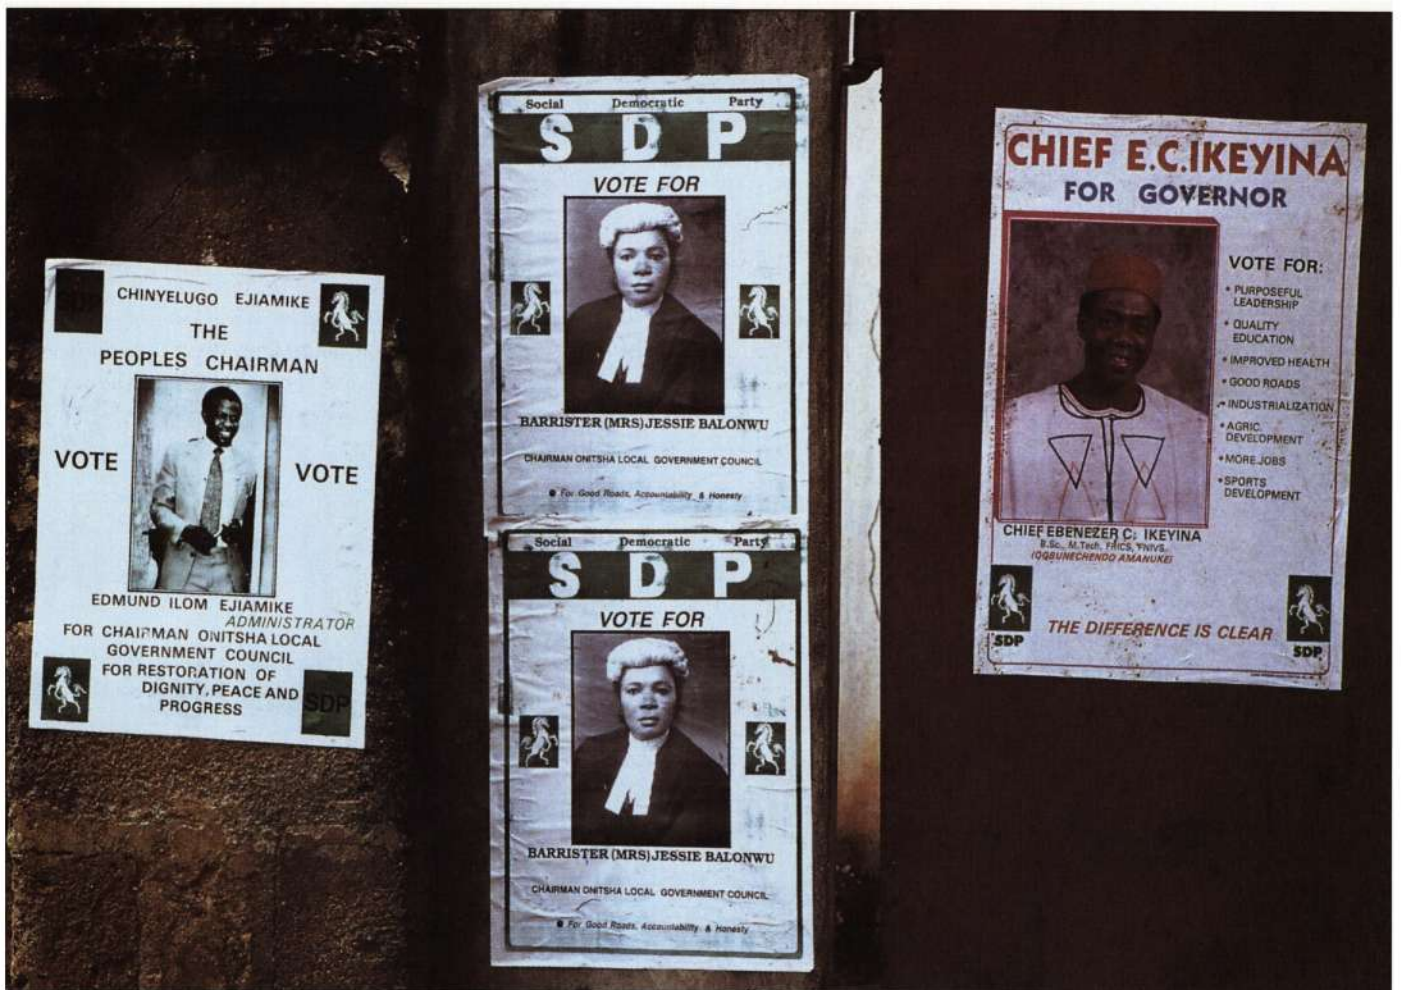 SDP
CHINYELUGO EJIAMIKE
THE
PEOPLES CHAIRMAN
VOTE
VOTE
EDMUND ILOM EJIAMIKE
ADMINISTRATOR
FOR CHAIRMAN ONITSHA LOCAL
GOVERNMENT COUNCIL
FOR RESTORATION OF
DIGNITY, PEACE AND
PROGRESS
SDP
Social Democratic Party
SDP
VOTE FOR
BARRISTER (MRS) JESSIE BALONWU
CHAIRMAN ONITSHA LOCAL GOVERNMENT COUNCIL
● For Good Roads, Accountability & Honesty
Social Democratic Party
SDP
VOTE FOR
BARRISTER (MRS) JESSIE BALONWU
CHAIRMAN ONITSHA LOCAL GOVERNMENT COUNCIL
● For Good Roads, Accountability & Honesty
CHIEF E.C.IKEYINA
FOR GOVERNOR
VOTE FOR:
• PURPOSEFUL
LEADERSHIP
• QUALITY
EDUCATION
• IMPROVED HEALTH
• GOOD ROADS
• INDUSTRIALIZATION
• AGRIC.
DEVELOPMENT
• MORE JOBS
• SPORTS
DEVELOPMENT
CHIEF EBENEZER C. IKEYINA
B.Sc., M.Tech, FRICS, FNIVS.
(OGBUNECHENDO AMANUKE)
THE DIFFERENCE IS CLEAR
SDP
SDP